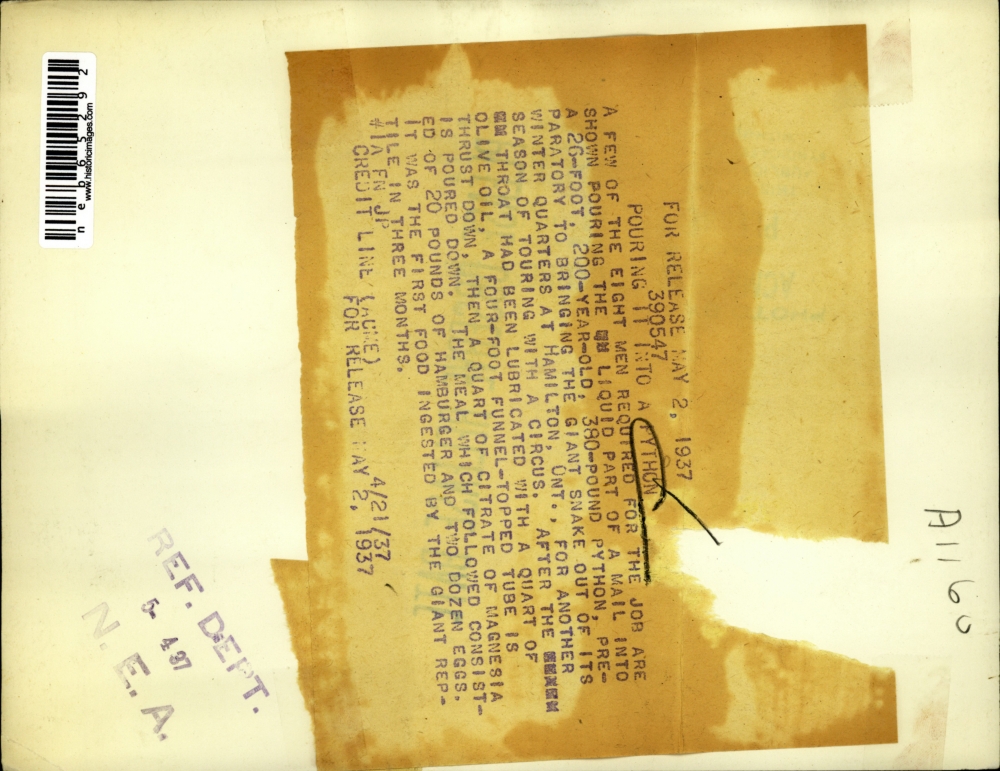 FOR RELEASE MAY 2, 1937
390547
POURING IT INTO A PYTHON
A FEW OF THE EIGHT MEN REQUIRED FOR THE JOB ARE
SHOWN POURING THE LIQUID PART OF A MAIL INTO
A 26-FOOT, 200-YEAR-OLD, 380-POUND PYTHON, PRE-
PARATORY TO BRINGING THE GIANT SNAKE OUT OF ITS
WINTER QUARTERS AT HAMILTON, ONT., FOR ANOTHER
SEASON OF TOURING WITH A CIRCUS. AFTER THE
THROAT HAD BEEN LUBRICATED WITH A QUART OF
OLIVE OIL, A FOUR-FOOT FUNNEL-TOPPED TUBE IS
THRUST DOWN, THEN A QUART OF CITRATE OF MAGNESIA
IS POURED DOWN. THE MEAL WHICH FOLLOWED CONSIST-
ED OF 20 POUNDS OF HAMBURGER AND TWO DOZEN EGGS.
IT WAS THE FIRST FOOD INGESTED BY THE GIANT REP-
TILE IN THREE MONTHS.
#1A FN JP 4/21/37
CREDIT LINE (ACME)
FOR RELEASE MAY 2, 1937
A1160
REF. DEPT.
5- 4-37
N. E. A.
neb65292
www.historicimages.com